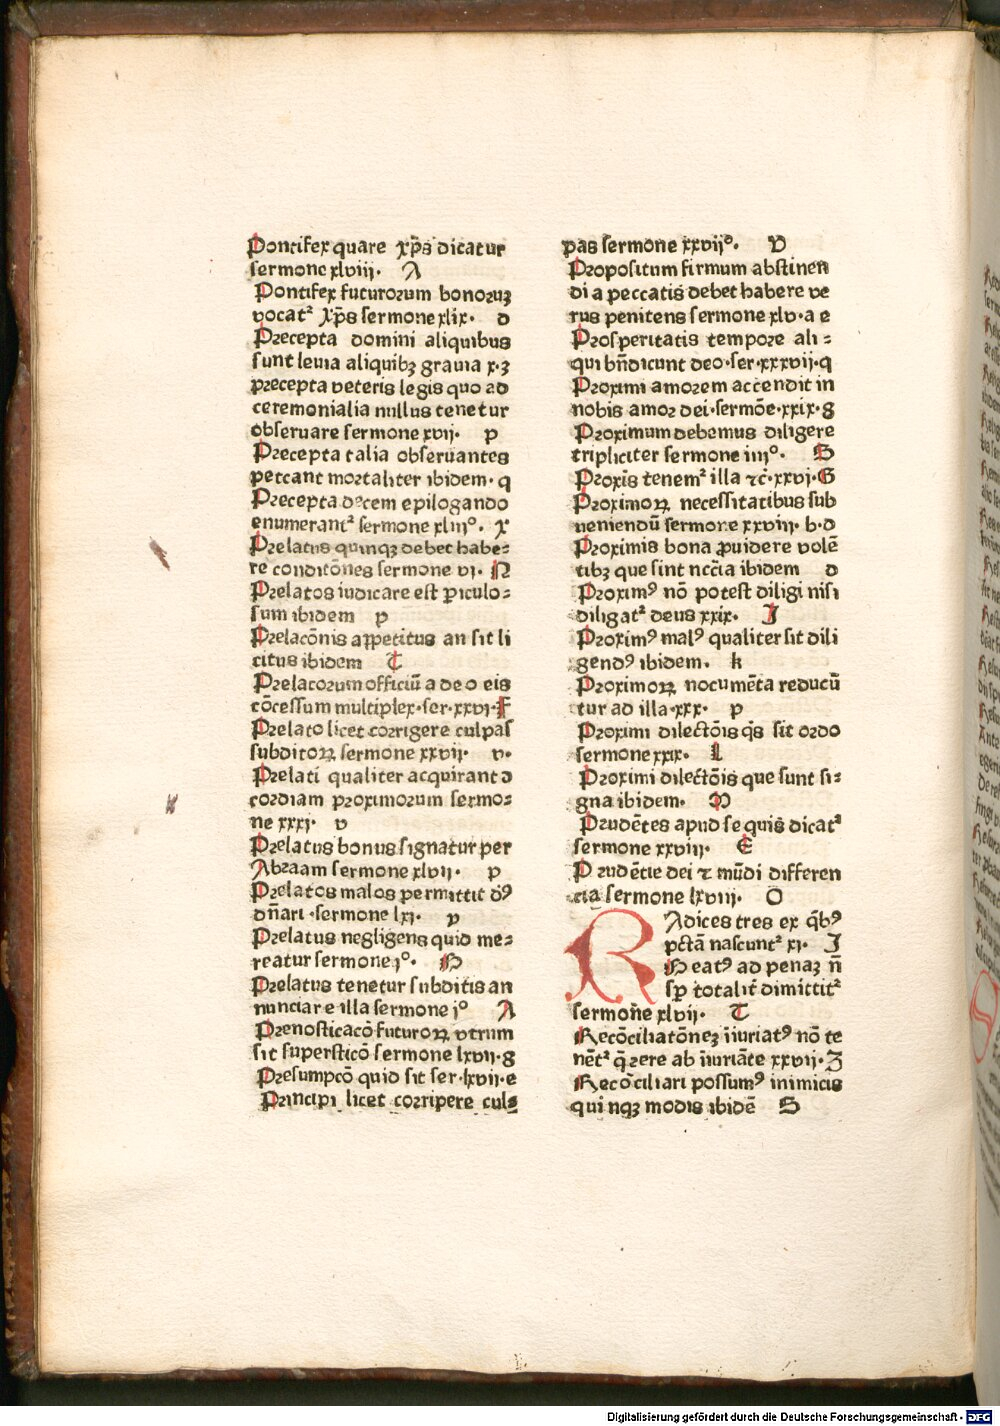 Pontifex quare xp̄s dicatur
sermone xlviii. A
Pontifex futurorum bonoruꝫ
vocat᷑ xp̄s sermone xlix. d
Precepta domini aliquibus
sunt leuia aliquibꝫ grauia x.ꝫ
precepta veteris legis quo ad
ceremonialia nullus tenetur
obseruare sermone xvij. p
Precepta talia obseruantes
peccant mortaliter ibidem. q
Precepta decem epilogando
enumerant᷑ sermone xliiiº. x
Prelatus quinqꝫ debet habe⸗
re conditōnes sermone vi. N
Prelatos iudicare est ꝑiculo⸗
sum ibidem p
Prelacōnis appetitus an sit li
citus ibidem T
Prelatorum officiū a deo eis
cōcessum multiplex.ser.xxvi.F
Prelato licet corrigere culpas
subditoꝝ sermone xxvii. v.
Prelati qualiter acquirant ↄ
cordiam proximorum sermo⸗
ne xxxi. v
Prelatus bonus signatur per
Abraam sermone xlvii. p
Prelatos malos permittit dꝰ
dn̄ari .sermone lxi. p
Prelatus negligens quid me⸗
reatur sermone jº. H
Prelatus tenetur subditis an
nunciare illa sermone iº A
Prenosticacō futuroꝝ vtrum
sit supersticō sermone lxvij.g
Presumpcō quid sit ser.lxvij.e
Principi licet corripere cul⸗
pas sermone xxvijº. V
Propositum firmum abstinen
di a peccatis debet habere ve
rus penitens sermone xlv.a e
Prosperitatis tempore ali⸗
qui bn̄dicunt deo.ser.xxxvij.q
Proximi amorem accendit in
nobis amor dei.sermōe.xxix.g
Proximum debemus diligere
tripliciter sermone iiijº. S
Proxīs tenem᷑ illa ⁊c̄.xxvi.G
Proximoꝝ necessitatibus sub
ueniendū sermone xxviii. b.d
Proximis bona ꝓuidere volē
tibꝫ que sint nc̄cia ibidem d
Proximꝰ nō potest diligi nisi
diligat᷑ deus xxix. I
Proximꝰ malꝰ qualiter sit dili
gendꝰ ibidem. k
Proximoꝝ nocumēta reducū
tur ad illa .xxx. p
Proximi dilectōis q̄s sit ordo
sermone xxix. L
Proximi dilectōis que sunt si⸗
gna ibidem. M
Prudētes apud se quis dicat᷑
sermone xxviii. E
Prudētie dei ⁊ mūdi differen
cia sermone lxviii. O
RAdices tres ex q̄bꝰ
pctā nascunt᷑ xi. I
Reatꝰ ad penaꝫ n̄
sꝑ totalit̄ dimittit᷑
sermone xlvij. T
Recōciliatōneꝫ iīuriatꝰ nō te
nēt᷑ q̄rere ab iīuriāte xxvij.Z
Recōciliari possumꝰ inimicis
quinqꝫ modis ibidē S